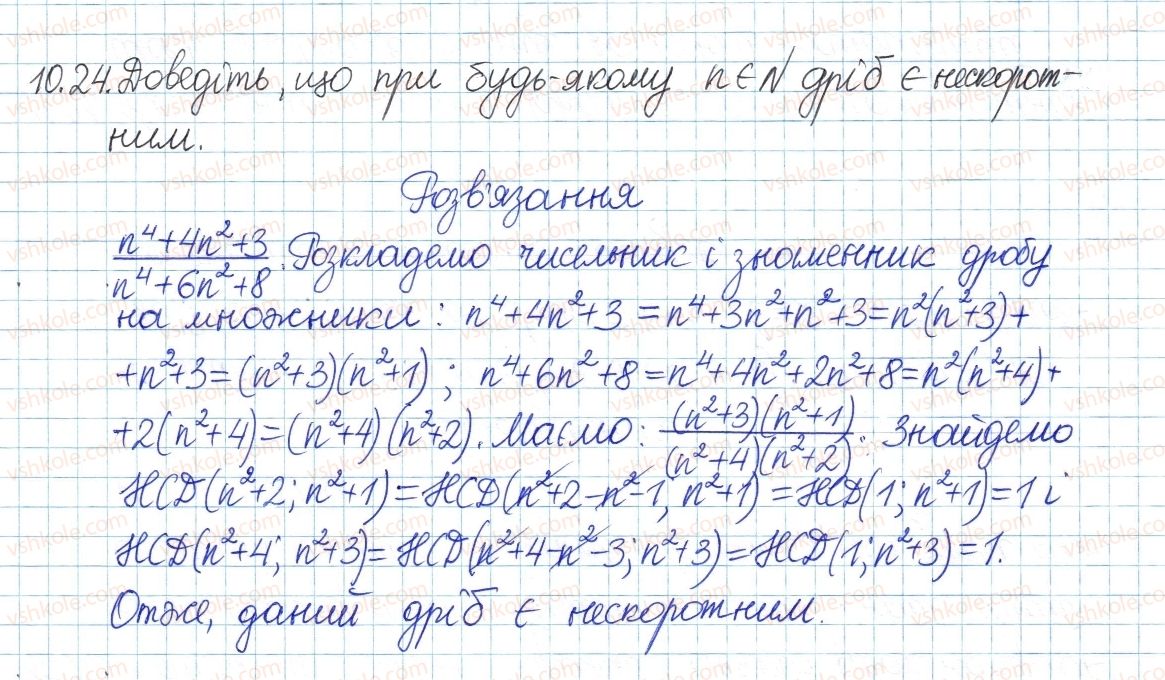 10.24. Доведіть, що при будь-якому n∈N дріб є нескорот-
ним.
Розв'язання
(n⁴+4n²+3)/(n⁴+6n²+8). Розкладемо чисельник і знаменник дробу
на множники: n⁴+4n²+3 = n⁴+3n²+n²+3=n²(n²+3)+
+n²+3=(n²+3)(n²+1); n⁴+6n²+8=n⁴+4n²+2n²+8=n²(n²+4)+
+2(n²+4)=(n²+4)(n²+2). Маємо: ((n²+3)(n²+1))/((n²+4)(n²+2)). Знайдемо
НСД(n²+2; n²+1)=НСД(n²+2-n²-1; n²+1)=НСД(1; n²+1)=1 і
НСД(n²+4; n²+3)=НСД(n²+4-n²-3; n²+3)=НСД(1; n²+3)=1.
Отже, даний дріб є нескоротним.